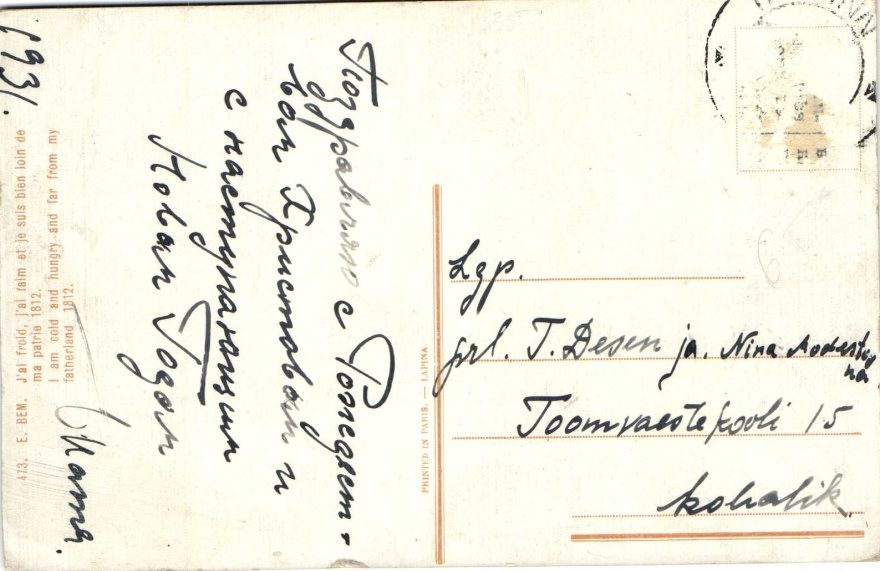 1931.
Поздравляю с Рождест-
вом Христовым и
с наступающим
Новым Годом
413. E. BEM. J'ai froid, j'ai faim et je suis bien loin de
ma patrie 1812.
I am cold and hungry and far from my
fatherland 1812.
PRINTED IN PARIS. — LAPINA
Lgp.
prl. T. Desen ja. Nina
Toomvaestekooli 15
kohalik.